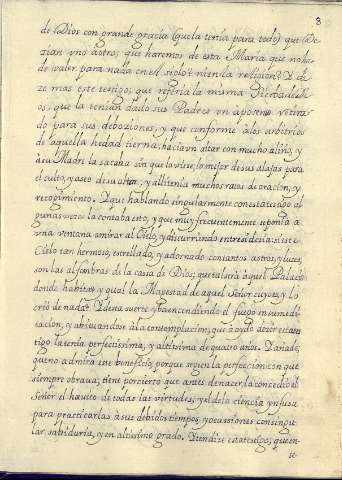 3
de Dios con grande gracia (que la tenia para todo) que de
zian vno aotro; que haremos de esta Maria que no ha
de valer para nada en el siglo? ni en la religion? Y di
ze mas este testigo; que referia la misma sierba de Di
os; que la tenian dado sus Padres vn aposento retira
do para sus debociones, y que conforme a los arbitrios
de aquella hedad tierna hacia vn altar con mucho aliño, y
a su Madre la sacaba sin que la viese, lo mejor de sus alajas para
el culto, y aseo de su altar; y alli tenia muchos ratos de oracion, y
recogimiento. Y que hablando singularmente con esta testigo al
gunas vezes la contaba esto, y que muy frecuentemente se ponia a
vna ventana a mirar al Cielo, y discurriendo entre si decia: si este
Cielo tan hermoso, estrellado, y adornado con tantos astros, y luces,
son las alfombras de la casa de Dios; que tal sera aquel Palacio
donde habita? y qual la Magestad de aquel Señor cuyo es, y lo
crió de nada? Y de esta suerte yba encendiendo el fuego in su medi
tacion, y abituandose a la contemplacion; que a oydo dezir esta tes
tigo la tenia perfectissima, y altissima de quatro años. Y añade,
que no admira este beneficio, porque segun la perfeccion con que
siempre obraua; tiene por cierto que antes de nacer, la concedió el
Señor el hauito de todas las virtudes, y el de la ciencia ynfusa
para practicarlas a sus debidos tiempos, y ocassiones con singu
lar sabiduria, y en altissimo grado. Y en dize esta testigo, que en
se